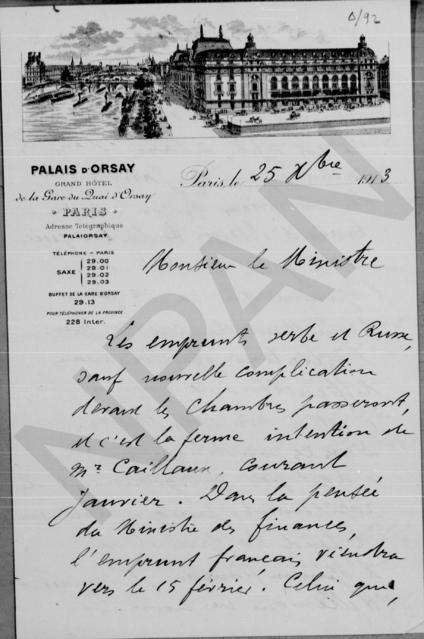 Δ/92
PALAIS D'ORSAY
GRAND HÔTEL
de la Gare du Quai d'Orsay
PARIS
Adresse Télégraphique
PALAIORSAY
TÉLÉPHONE - PARIS
SAXE
29.00
29.01
29.02
29.03
BUFFET DE LA GARE D'ORSAY
29.13
POUR TÉLÉPHONER DE LA PROVINCE
228 Inter.
Paris, le 25 Xbre 1913
Monsieur le Ministre
Les emprunts serbe et Russe,
sauf nouvelle complication
devant les Chambres passeront,
et c'est la ferme intention de
Mr Caillaux, courant
Janvier. Dans la pensée
du Ministre des finances,
l'emprunt français viendra
vers le 15 février. Celui que,
NPAN